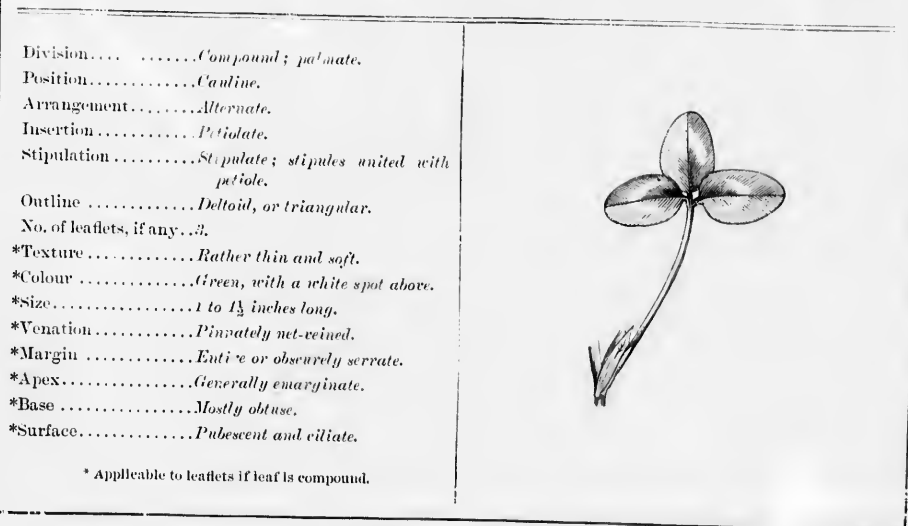 Division.... .......Compound; palmate.
Position.............Cauline.
Arrangement........Alternate.
Insertion...........Petiolate.
Stipulation..........Stipulate; stipules united with
petiole.
Outline .............Deltoid, or triangular.
No. of leaflets, if any..3.
*Texture .............Rather thin and soft.
*Colour .............Green, with a white spot above.
*Size.................1 to 1½ inches long.
*Venation............Pinnately net-veined.
*Margin .............Entire or obscurely serrate.
*Apex................Generally emarginate.
*Base ................Mostly obtuse.
*Surface..............Pubescent and ciliate.
* Applicable to leaflets if leaf is compound.